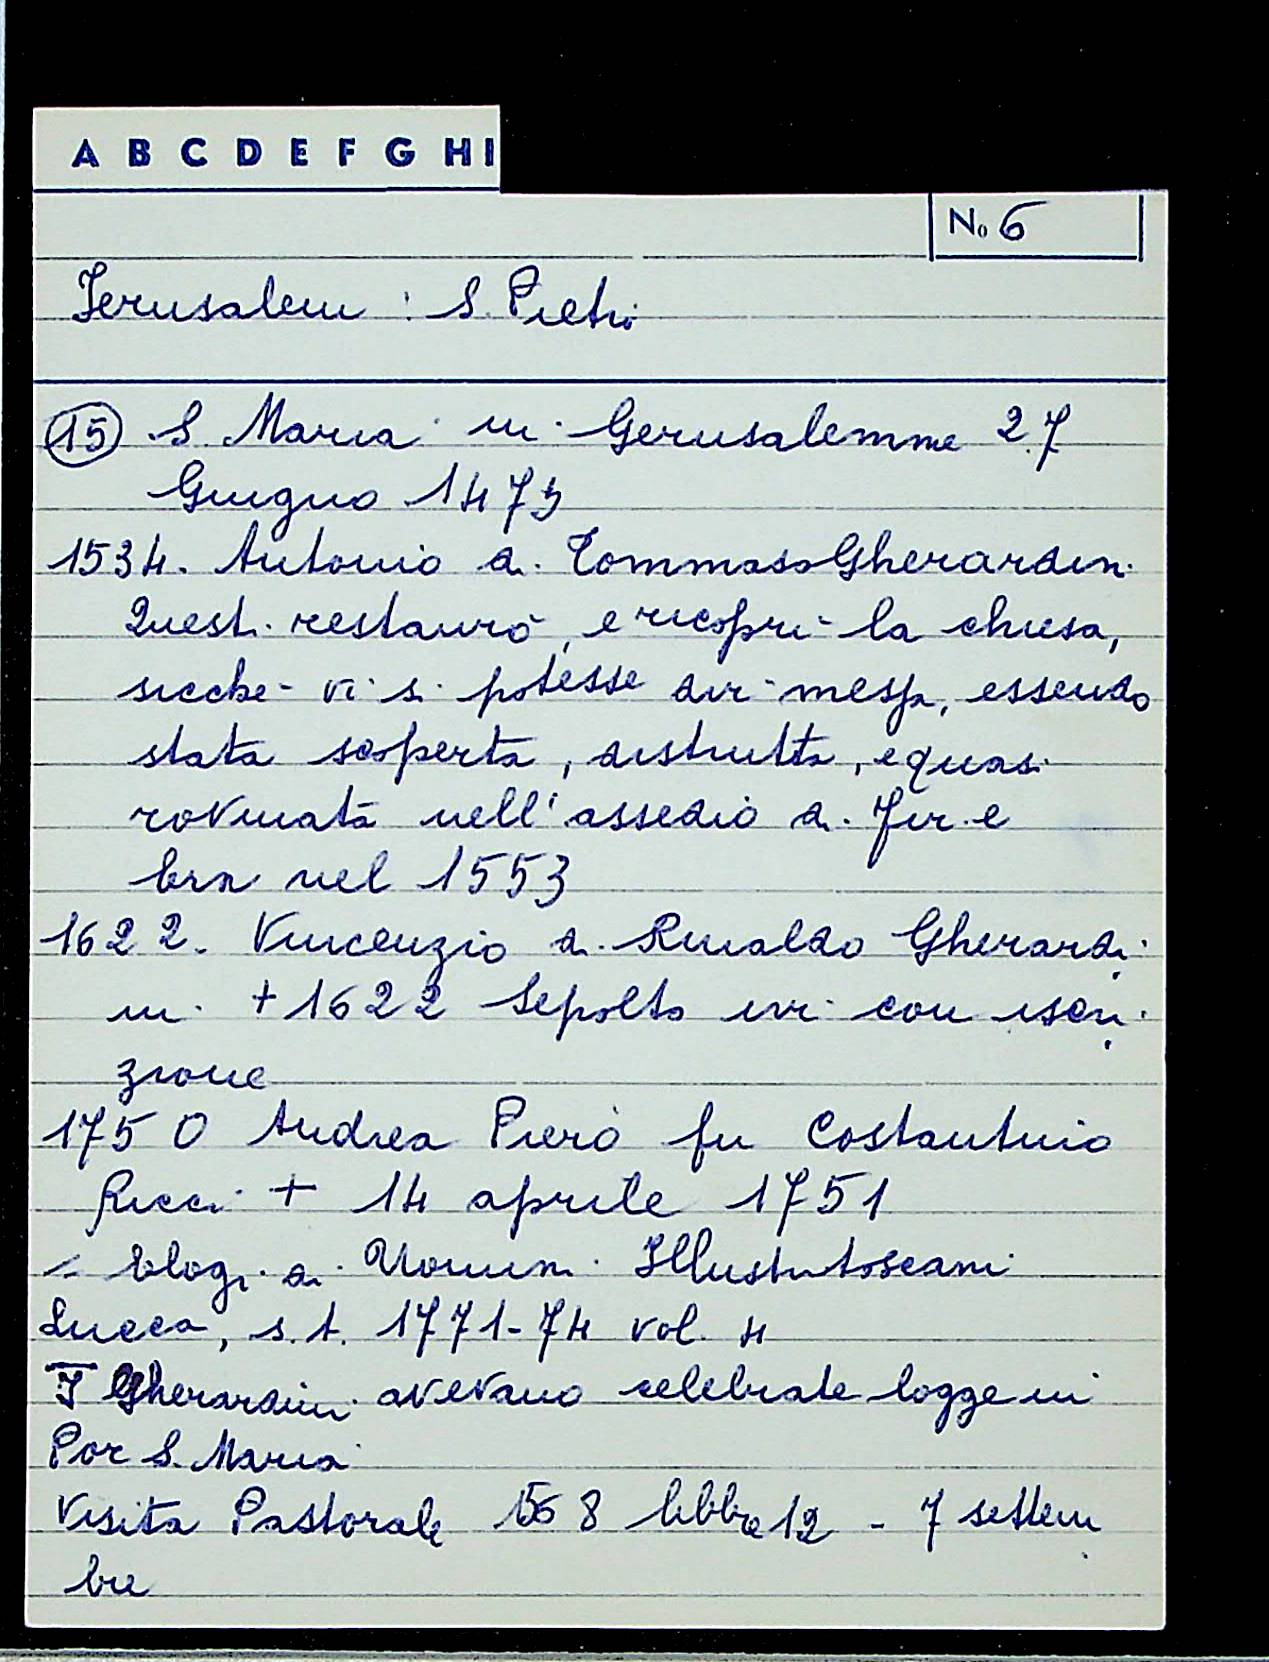 A B C D E F G H I
No 6
Jerusalem : S. Pietri
15 S. Maria in Gerusalemme 27
Giugno 1473
1534. Antonio di Tommaso Gherardini
Questi restaurò, e ricoprì la chiesa,
sicché vi si potesse dir messa, essendo
stata scoperta, distrutta, e quasi
rovinata nell'assedio di Fir. e
nel 1553
1622. Vincenzio di Rinaldo Gherardi
ni + 1622 Sepolto ivi con iscri
zione
1750 Andrea Piero fu Costantino
Ricci + 14 aprile 1751
- Elogi di Uomini Illustri toscani
Lucca, s.t. 1771-74 vol. 4
I Gherardini avevano celebrate logge in
Por S. Maria
Visita Pastorale 1568 libbre 12 - 7 settem
bre